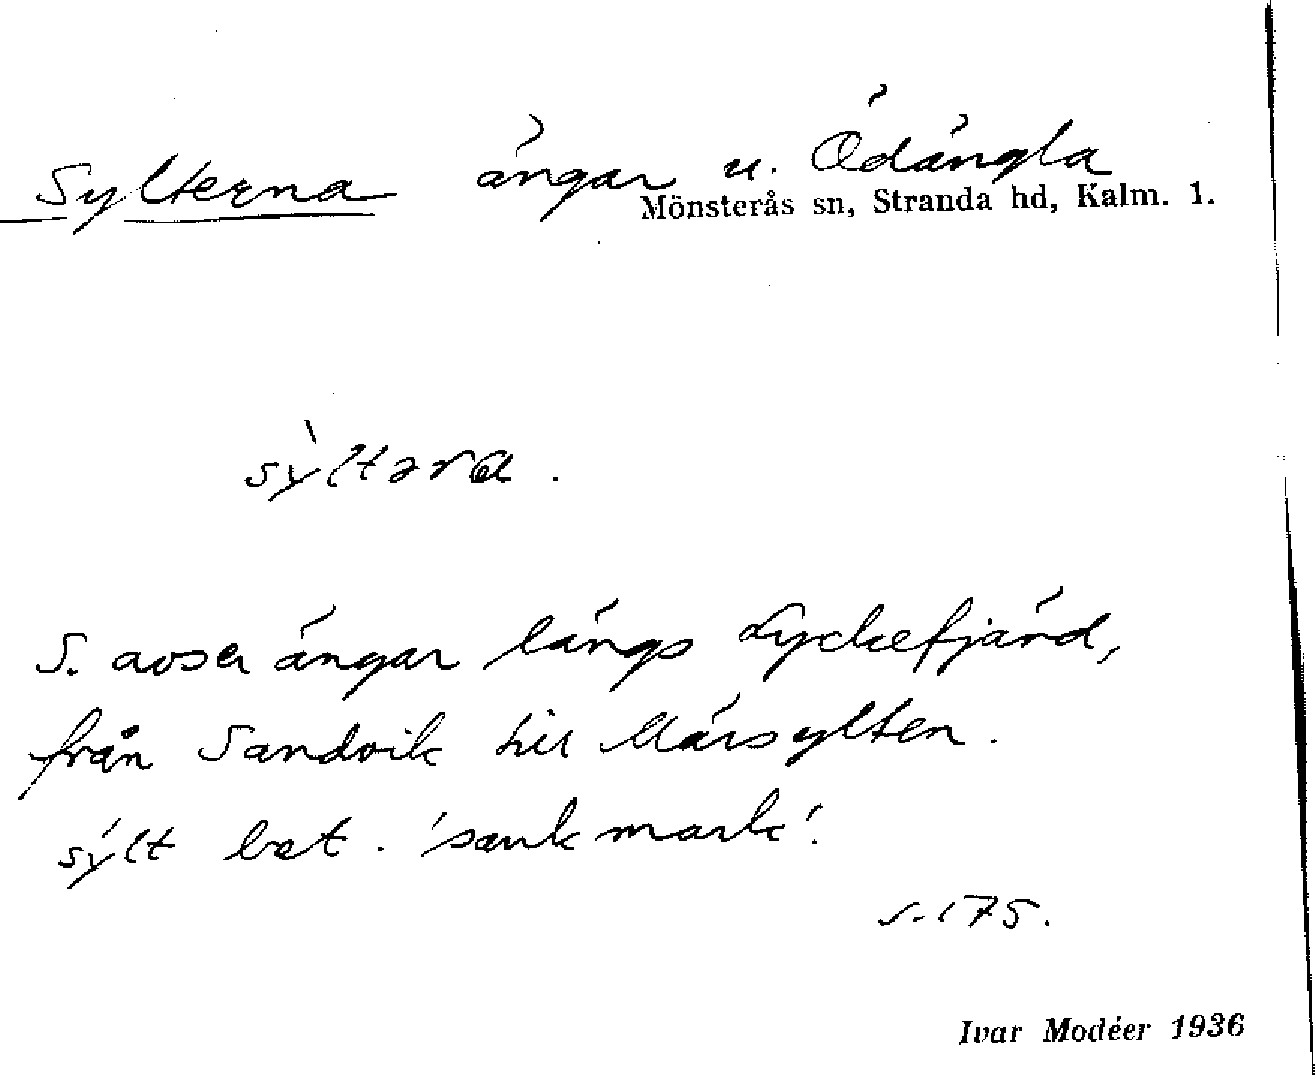 Sylterna ängar u. Ödängla
Mönsterås sn, Stranda hd, Kalm. l.
sỳltərα.
S. avser ängar längs Lyckefjärd,
från Sandvik till Märsylten.
sýlt bet. 'sank mark'.
s. 175.
Ivar Modéer 1936